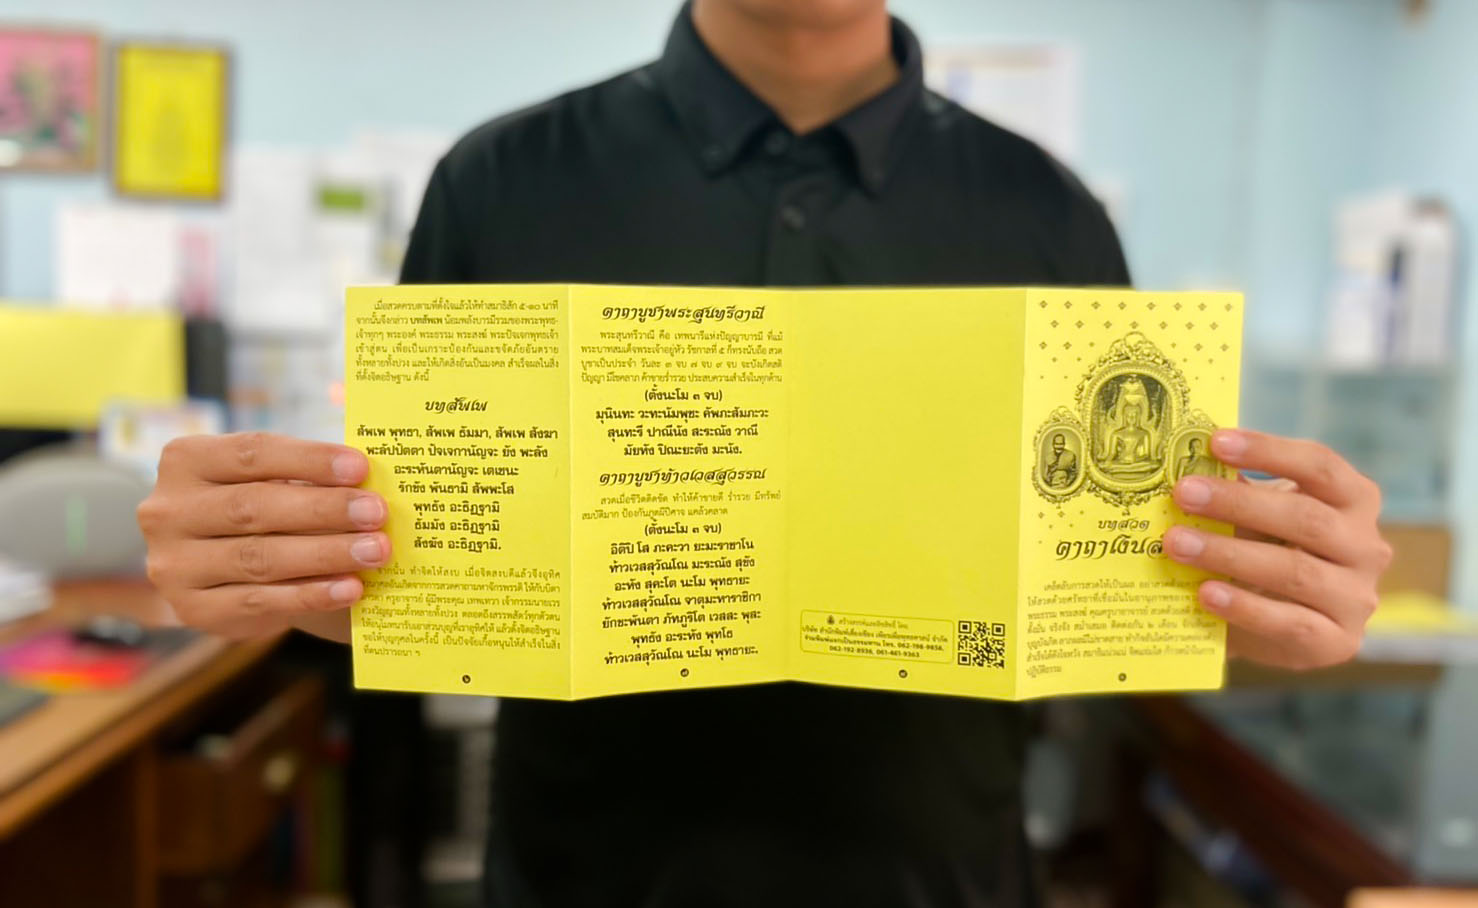 เมื่อสวดครบตามที่ตั้งใจแล้วให้ทำสมาธิสัก ๕-๑๐ นาที
จากนั้นจึงกล่าว บทสัพเพ น้อมพลังบารมีรวมของพระพุทธ-
เจ้าทุกๆ พระองค์ พระธรรม พระสงฆ์ พระปัจเจกพุทธเจ้า
เข้าสู่ตน เพื่อเป็นเกราะป้องกันและขจัดภัยอันตราย
ทั้งหลายทั้งปวง และให้เกิดสิ่งอันเป็นมงคล สำเร็จผลในสิ่ง
ที่ตั้งจิตอธิษฐาน ดังนี้
บทสัพเพ
สัพเพ พุทธา, สัพเพ ธัมมา, สัพเพ สังฆา
พะลัปปัตตา ปัจเจกานัญจะ ยัง พะลัง
อะระหันตานัญจะ เตเชนะ
รักขัง พันธามิ สัพพะโส
พุทธัง อะธิฏฐามิ
ธัมมัง อะธิฏฐามิ
สังฆัง อะธิฏฐามิ.
จากนั้น ทำจิตให้สงบ เมื่อจิตสงบดีแล้วจึงอุทิศ
ส่วนกุศลอันเกิดจากการสวดคาถามหาจักรพรรดิ ให้กับบิดา
มารดา ครูอาจารย์ ผู้มีพระคุณ เทพเทวา เจ้ากรรมนายเวร
ดวงวิญญาณทั้งหลายทั้งปวง ตลอดถึงสรรพสัตว์ทุกตัวตน
ให้อนุโมทนารับเอาส่วนบุญที่เราอุทิศให้ แล้วตั้งจิตอธิษฐาน
ขอให้บุญกุศลในครั้งนี้ เป็นปัจจัยเกื้อหนุนให้สำเร็จในสิ่ง
ที่ตนปรารถนา ฯ
๖
คาถาบูชาพระสุนทรีวาณี
พระสุนทรีวาณี คือ เทพนารีแห่งปัญญาบารมี ที่แม้
พระบาทสมเด็จพระเจ้าอยู่หัว รัชกาลที่ ๕ ก็ทรงนับถือ สวด
บูชาเป็นประจำ วันละ ๓ จบ ๗ จบ ๙ จบ จะบังเกิดสติ
ปัญญา มีโชคลาภ ค้าขายร่ำรวย ประสบความสำเร็จในทุกด้าน
(ตั้งนะโม ๓ จบ)
มุนินทะ วะทะนัมพุชะ คัพภะสัมภะวะ
สุนทะรี ปาณีนัง สะระณัง วาณี
มัยหัง ปิณะยะตัง มะนัง.
คาถาบูชาท้าวเวสสุวรรณ
สวดเมื่อชีวิตติดขัด ทำให้ค้าขายดี ร่ำรวย มีทรัพย์
สมบัติมาก ป้องกันภูตผีปีศาจ แคล้วคลาด
(ตั้งนะโม ๓ จบ)
อิติปิ โส ภะคะวา ยะมะราชาโน
ท้าวเวสสุวัณโณ มะระณัง สุขัง
อะหัง สุคะโต นะโม พุทธายะ
ท้าวเวสสุวัณโณ จาตุมะหาราชิกา
ยักขะพันตา ภัทภูริโต เวสสะ พุสะ
พุทธัง อะระหัง พุทโธ
ท้าวเวสสุวัณโณ นะโม พุทธายะ.
๗
สร้างสรรค์และลิขสิทธิ์ โดย
บริษัท สำนักพิมพ์เลี่ยงเชียง เพียรเพื่อพุทธศาสน์ จำกัด
ร่วมพิมพ์แจกเป็นธรรมทาน โทร. 062-198-9858,
062-192-8936, 061-461-9363
๘
บทสวด
คาถาเงินล
เคล็ดลับการสวดให้เป็นผล
ให้สวดด้วยศรัทธาที่เชื่อมั่นในอานุภาพของ
พระธรรม พระสงฆ์ คุณครูบาอาจารย์ สวดด้วยสติ
ตั้งมั่น จริงจัง สม่ำเสมอ ติดต่อกัน ๒ เดือน
ปฏิบัติธรรม
๑